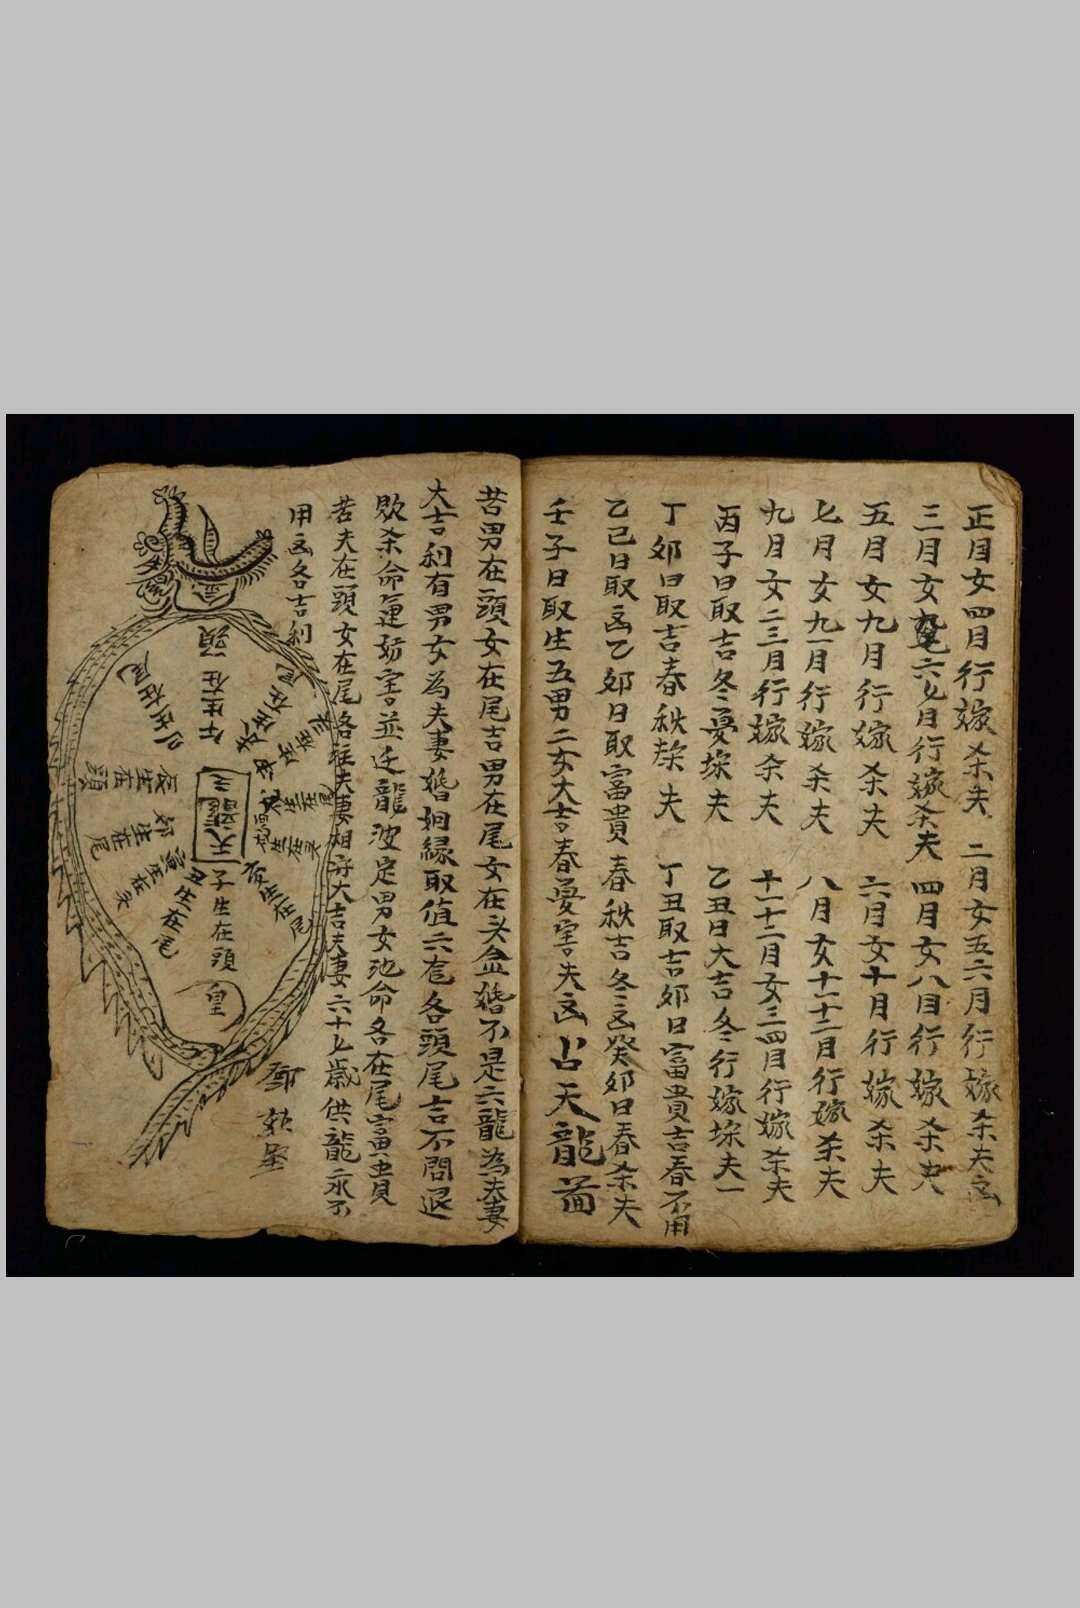 正月女四月行嫁杀夫 二月女五六月行嫁杀夫凶
三月女六七月行嫁杀夫 四月女八月行嫁杀夫
五月女九月行嫁杀夫 六月女十月行嫁杀夫
七月女九一月行嫁杀夫 八月女十十二月行嫁杀夫
九月女二三月行嫁杀夫 十一十二月女三四月行嫁杀夫
丙子日取吉冬憂垛夫 乙丑日大吉冬行嫁垛夫一
丁卯日取吉春秋夫 丁丑取吉卯日富貴吉春不用
乙己日取凶乙卯日取富貴春秋吉冬凶癸卯日春杀夫
壬子日取生五男二女大吉春憂害夫凶占天龍啚
若男在頭女在尾吉男在尾女在头益婚不是六龍為夫妻
大吉利有男女為夫妻婚姻緣取值六尾各頭尾言不問退
敗杀命運妨害並迁龍波定男女地命各在尾富貴
若夫在頭女在尾各夫妻相守大吉夫妻六十七歲供龍永不
用凶各吉利
頭
午生在頭
巳生在尾
辰生在頭
卯生在尾
寅生在头
丑生在尾
子生在頭
亥生在尾
戌生在头
天龍三
皇